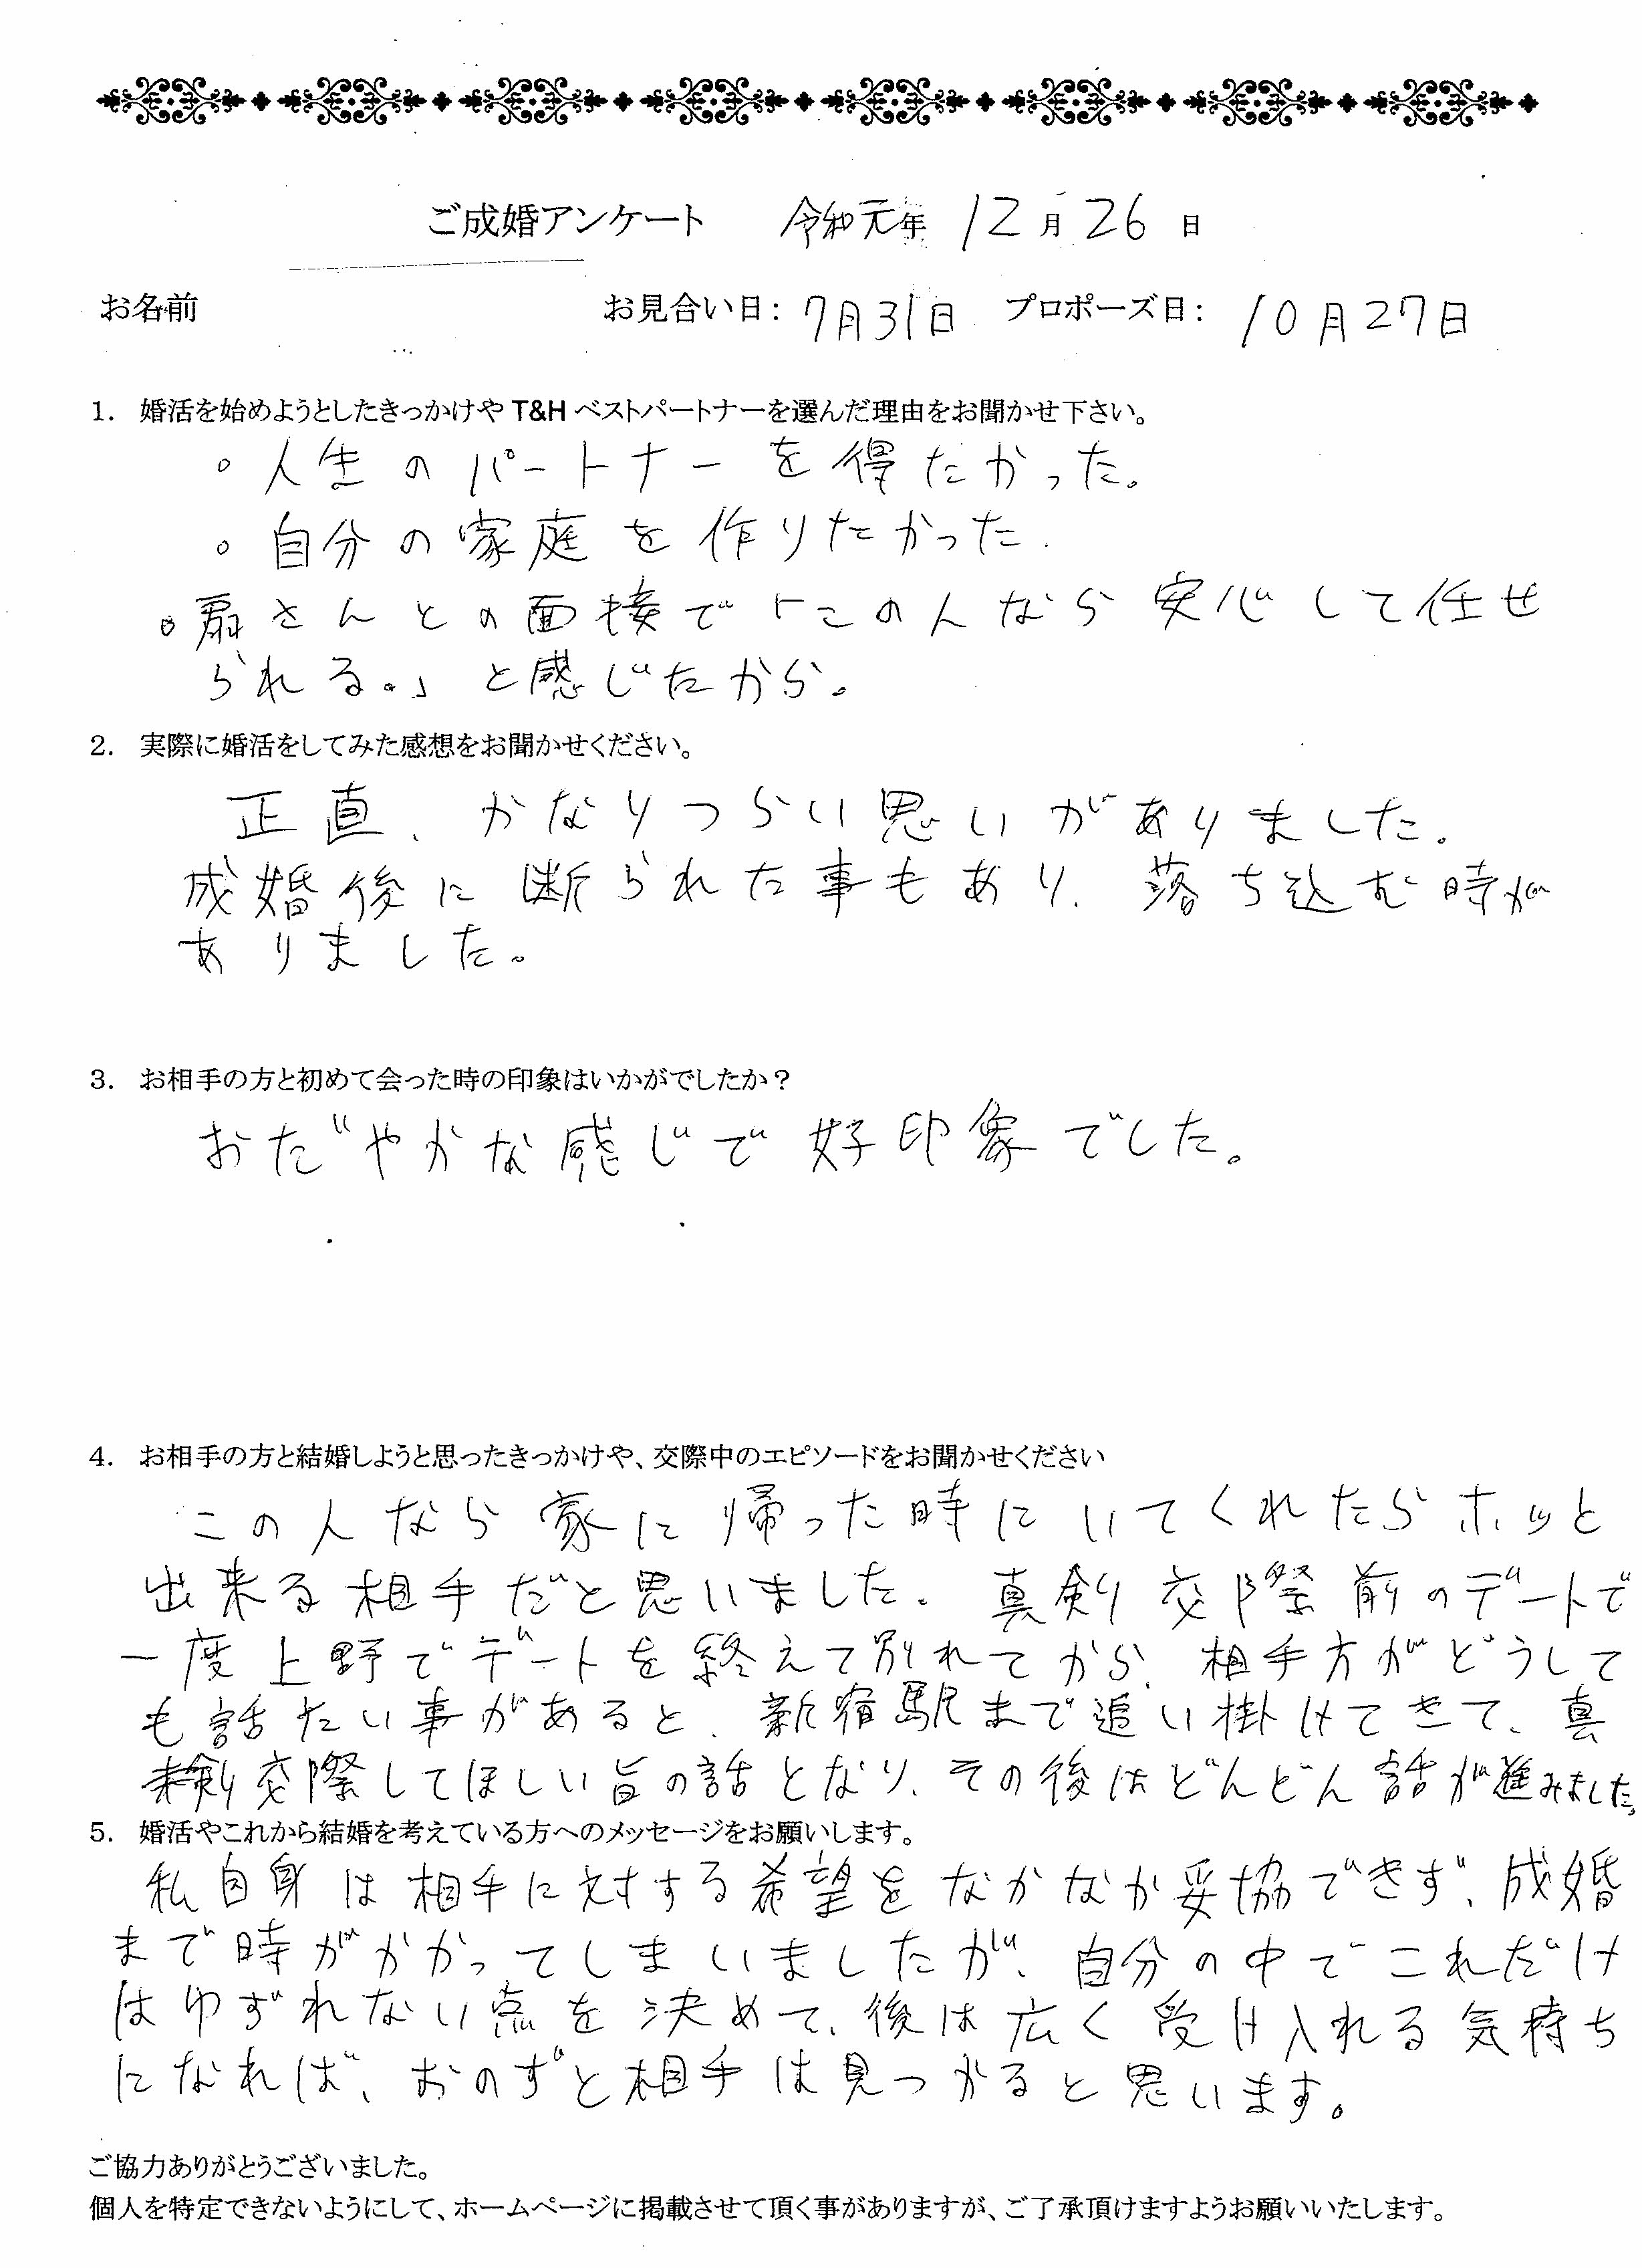 ご成婚アンケート 令和元年 12月 26日
お名前 お見合い日: 7月31日 プロポーズ日: 10月27日
1. 婚活を始めようとしたきっかけや T&H ベストパートナーを選んだ理由をお聞かせ下さい。
。人生のパートナーを得たかった。
。自分の家庭を作りたかった.
。扇さんとの面接で「この人なら安心して任せ
られる。」と感じたから。
2. 実際に婚活をしてみた感想をお聞かせください。
正直、かなりつらい思いがありました。
成婚後に断られた事もあり、落ち込む時が
ありました。
3. お相手の方と初めて会った時の印象はいかがでしたか?
おだやかな感じで好印象でした。
4. お相手の方と結婚しようと思ったきっかけや、交際中のエピソードをお聞かせください
この人なら家に帰った時にいてくれたらホッと
出来る相手だと思いました。真剣交際前のデートで
一度上野でデートを終えて別れてから、相手方がどうして
も話たい事があると、新宿駅まで追い掛けてきて、真
剣交際してほしい旨の話となり、その後はどんどん話が進みました。
5. 婚活やこれから結婚を考えている方へのメッセージをお願いします。
私自身は相手に対する希望をなかなか妥協できず、成婚
まで時がかかってしまいましたが、自分の中でこれだけ
はゆずれない点を決めて、後は広く受け入れる気持ち
になれば、おのずと相手は見つかると思います。
ご協力ありがとうございました。
個人を特定できないようにして、ホームページに掲載させて頂く事がありますが、ご了承頂けますようお願いいたします。